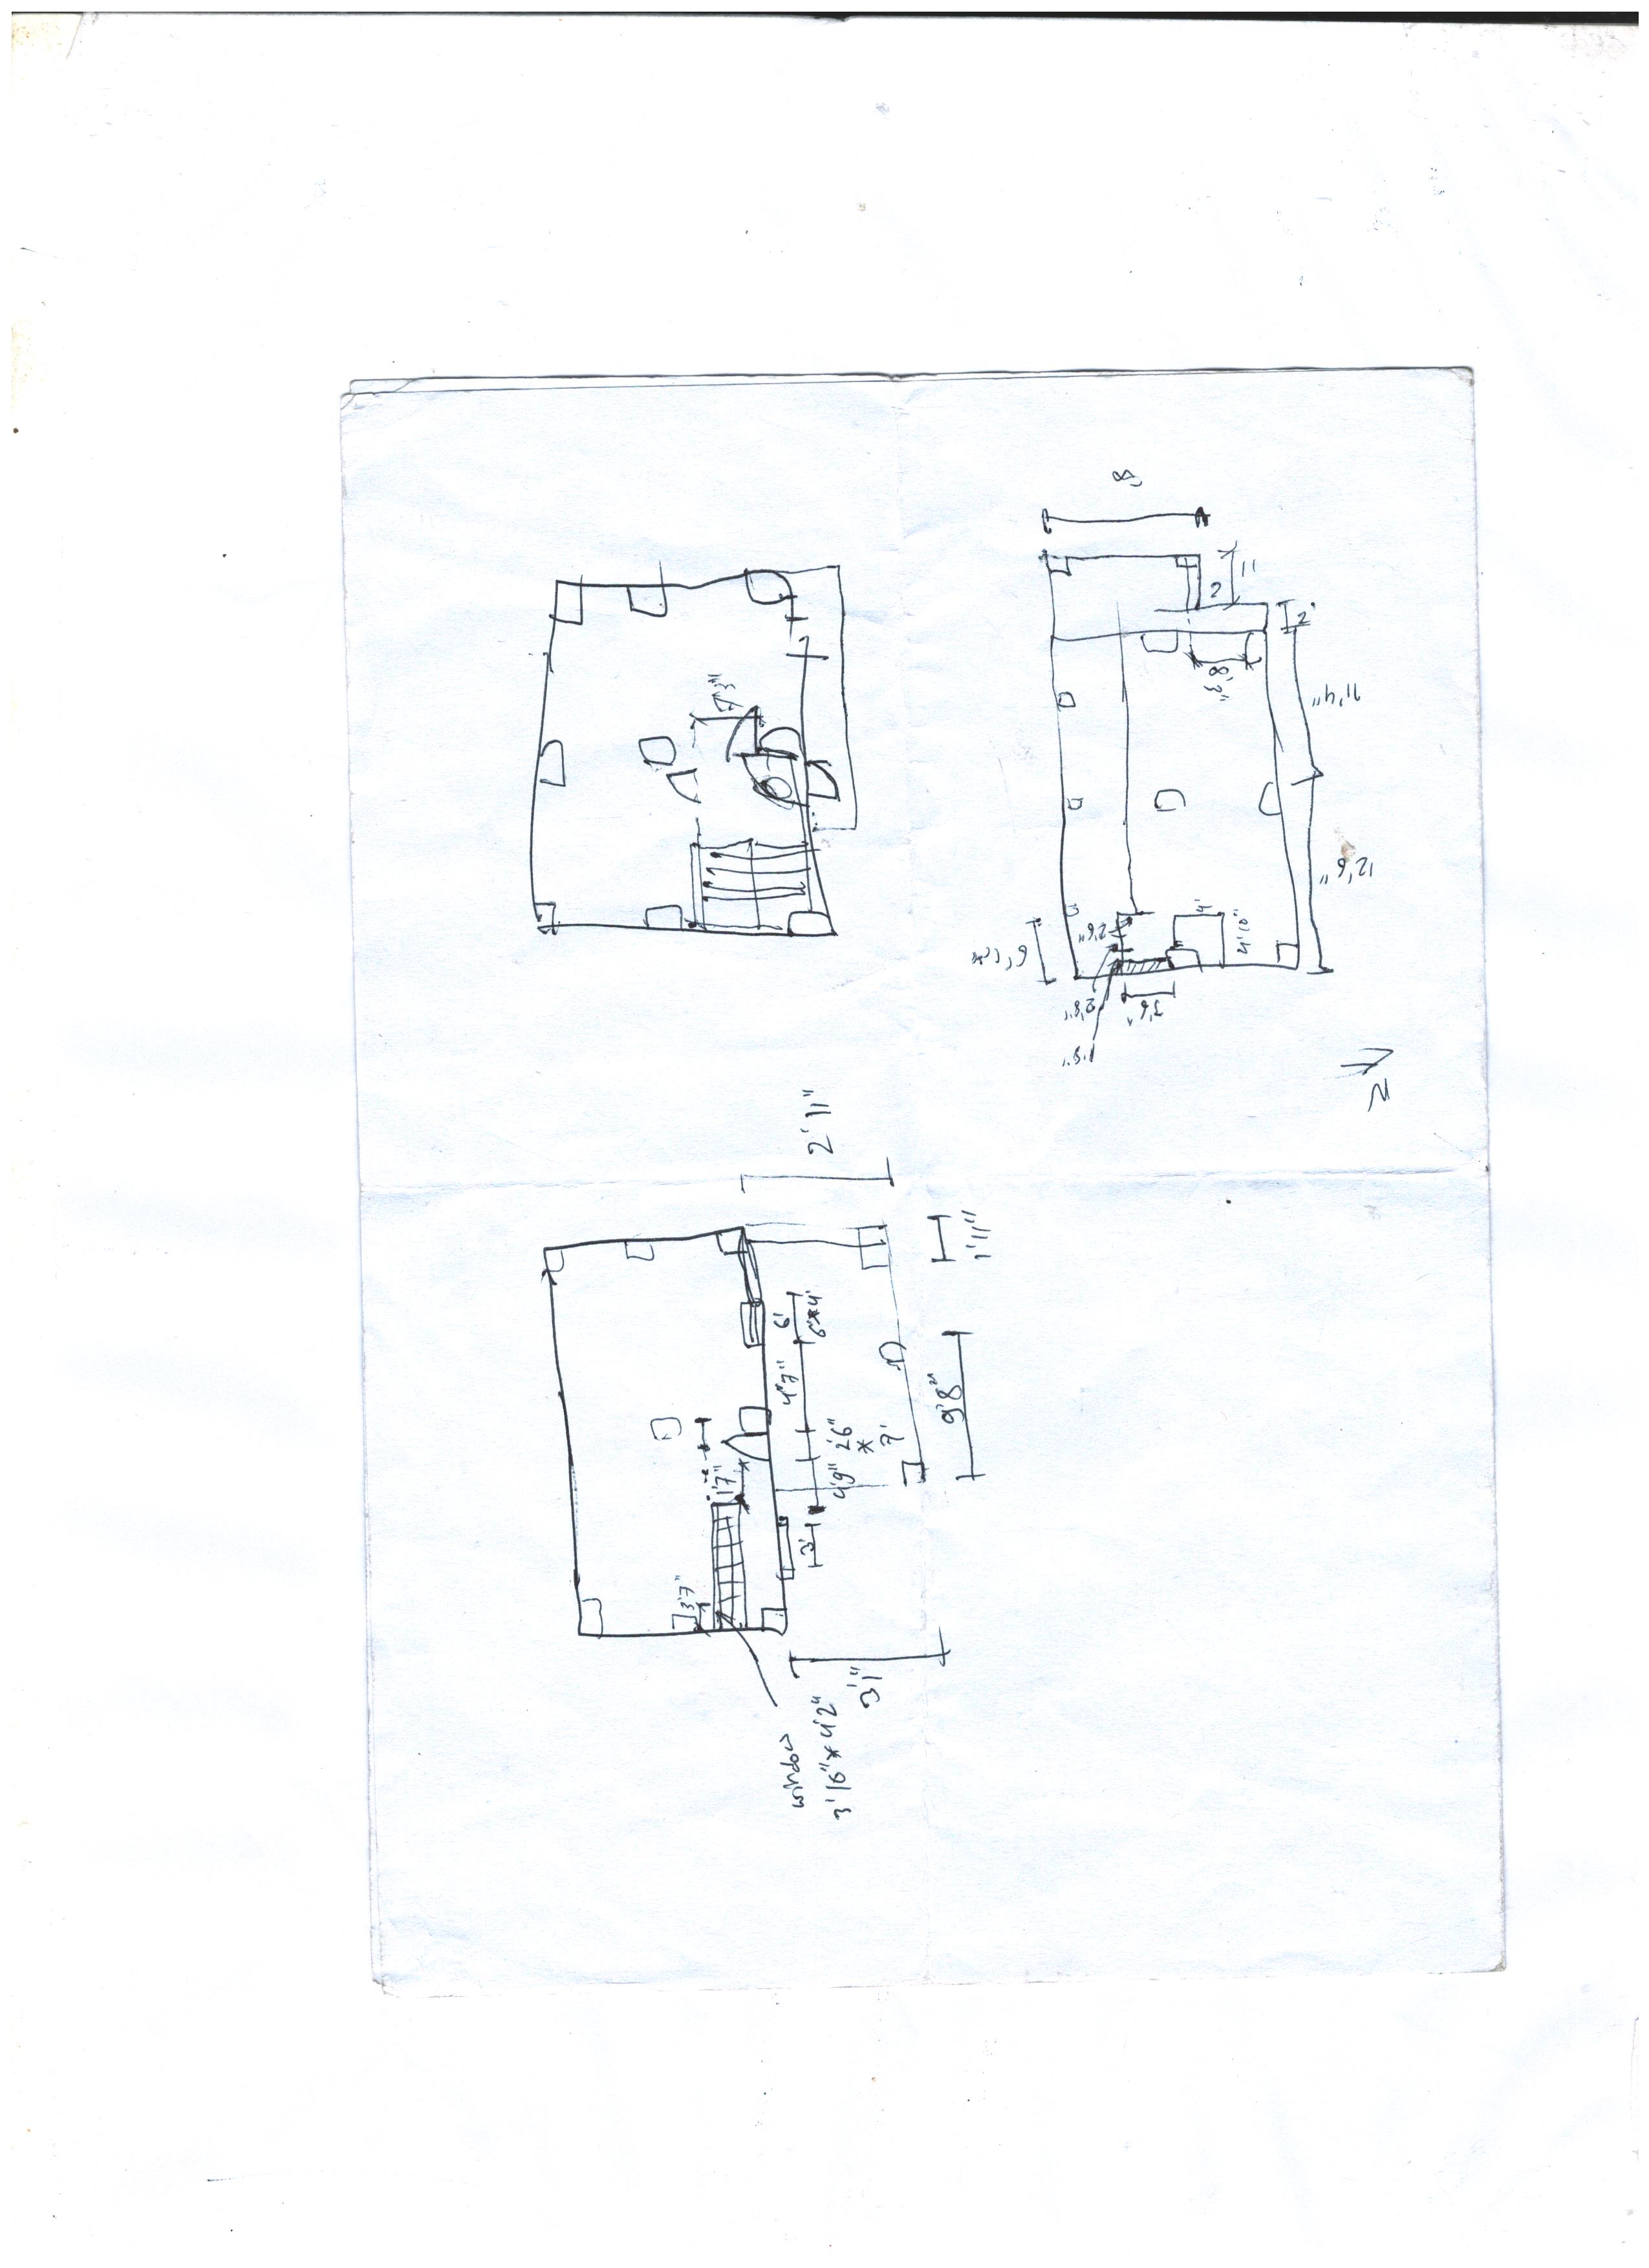 7'3"
8'
11
2
2'
8'3"
11'4"
12'6"
4'
4'10"
2'6"
2'8"
3'6"
1'8"
N
2'11"
1'11"
6'
6'*4'
4'7"
9'8"
2'6"
*
7'
4'9"
1'7"
3'
3'7"
3'1"
window
3'10"*4'2"